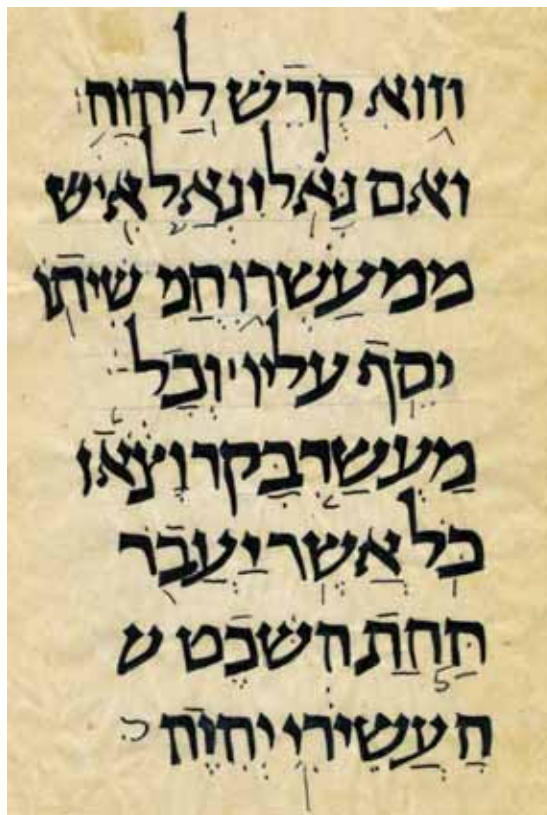 הוּא קֹדֶשׁ לַיהוָה׃
וְאִם גָּאֹל יִגְאַל אִישׁ
מִמַּעַשְׂרוֹ חֲמִשִׁיתוֹ
יֹסֵף עָלָיו׃ וְכָל
מַעְשַׂר בָּקָר וָצֹאן
כֹּל אֲשֶׁר יַעֲבֹר
תַּחַת הַשָּׁבֶט
הָעֲשִׂירִי יִהְיֶה